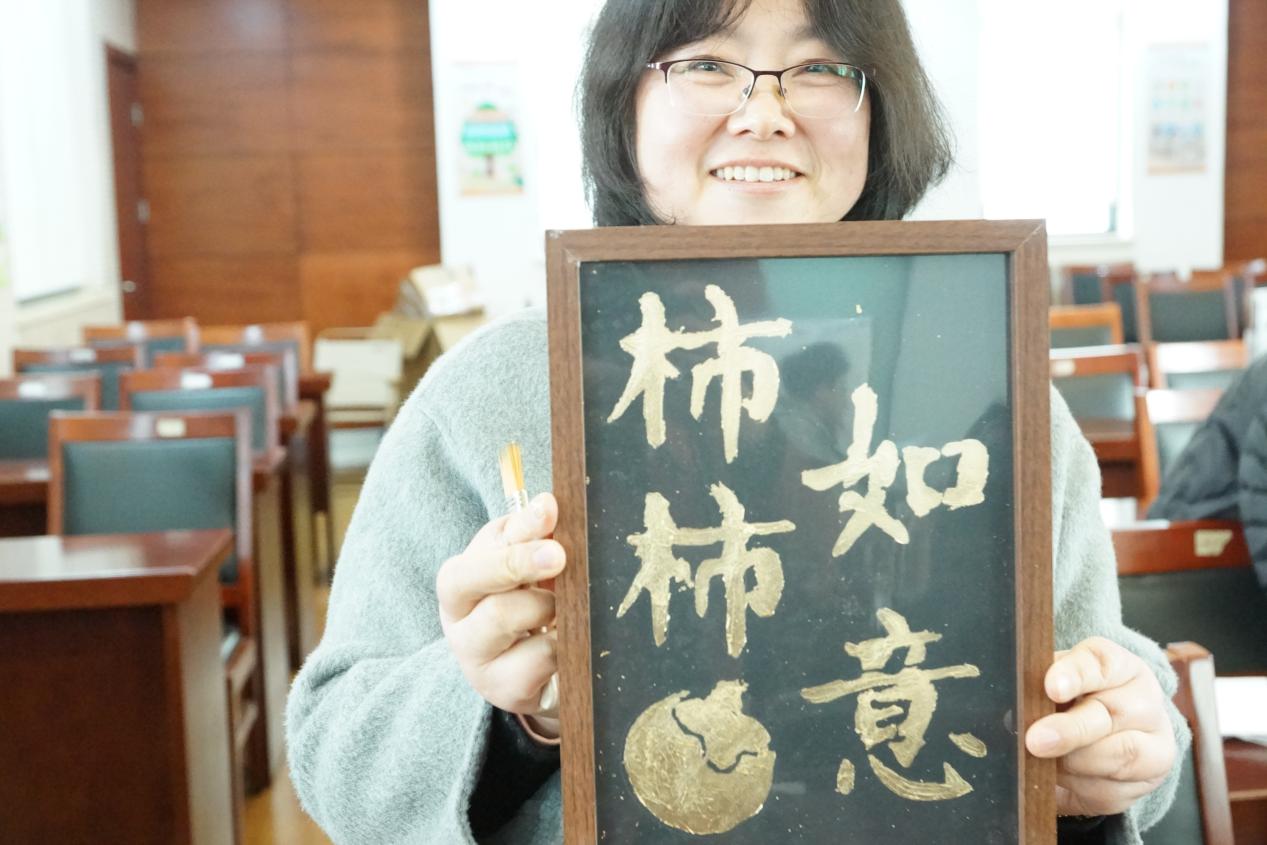 柿柿
如意